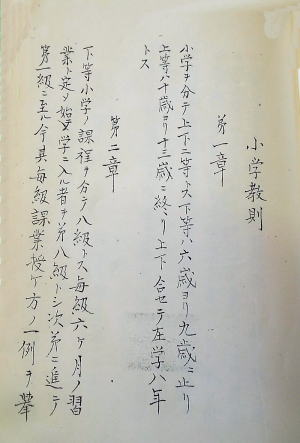 小学教則
第一章
小学ヲ分テ上下二等トス下等ハ六歳ヨリ九歳ニ止リ
上等ハ十歳ヨリ十三歳ニ終リ上下合セテ在学八年
トス
第二章
下等小学ノ課程ヲ分テ八級トス毎級六ケ月ノ習
業ト定メ始テ学ニ入ル者ヲ第八級トシ次第ニ進テ
第一級ニ至ル今其毎級課業授ケ方ノ一例ヲ挙